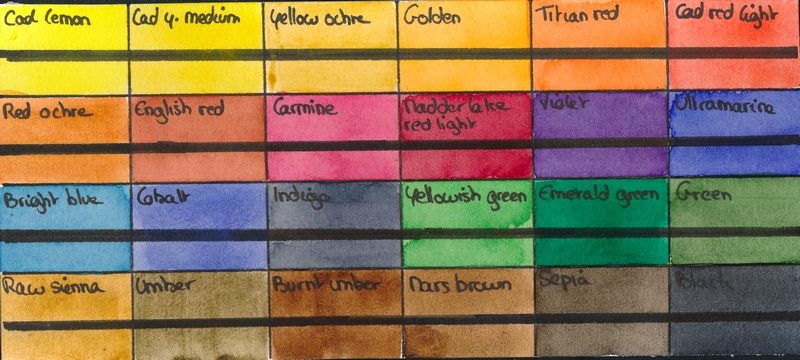 Cad lemon
Cad y. medium
Yellow ochre
Golden
Titian red
Cad red light
Red ochre
English red
Carmine
Madder lake
red light
Violet
Ultramarine
Bright blue
Cobalt
Indigo
Yellowish green
Emerald green
Green
Raw sienna
Umber
Burnt umber
Mars brown
Sepia
Black